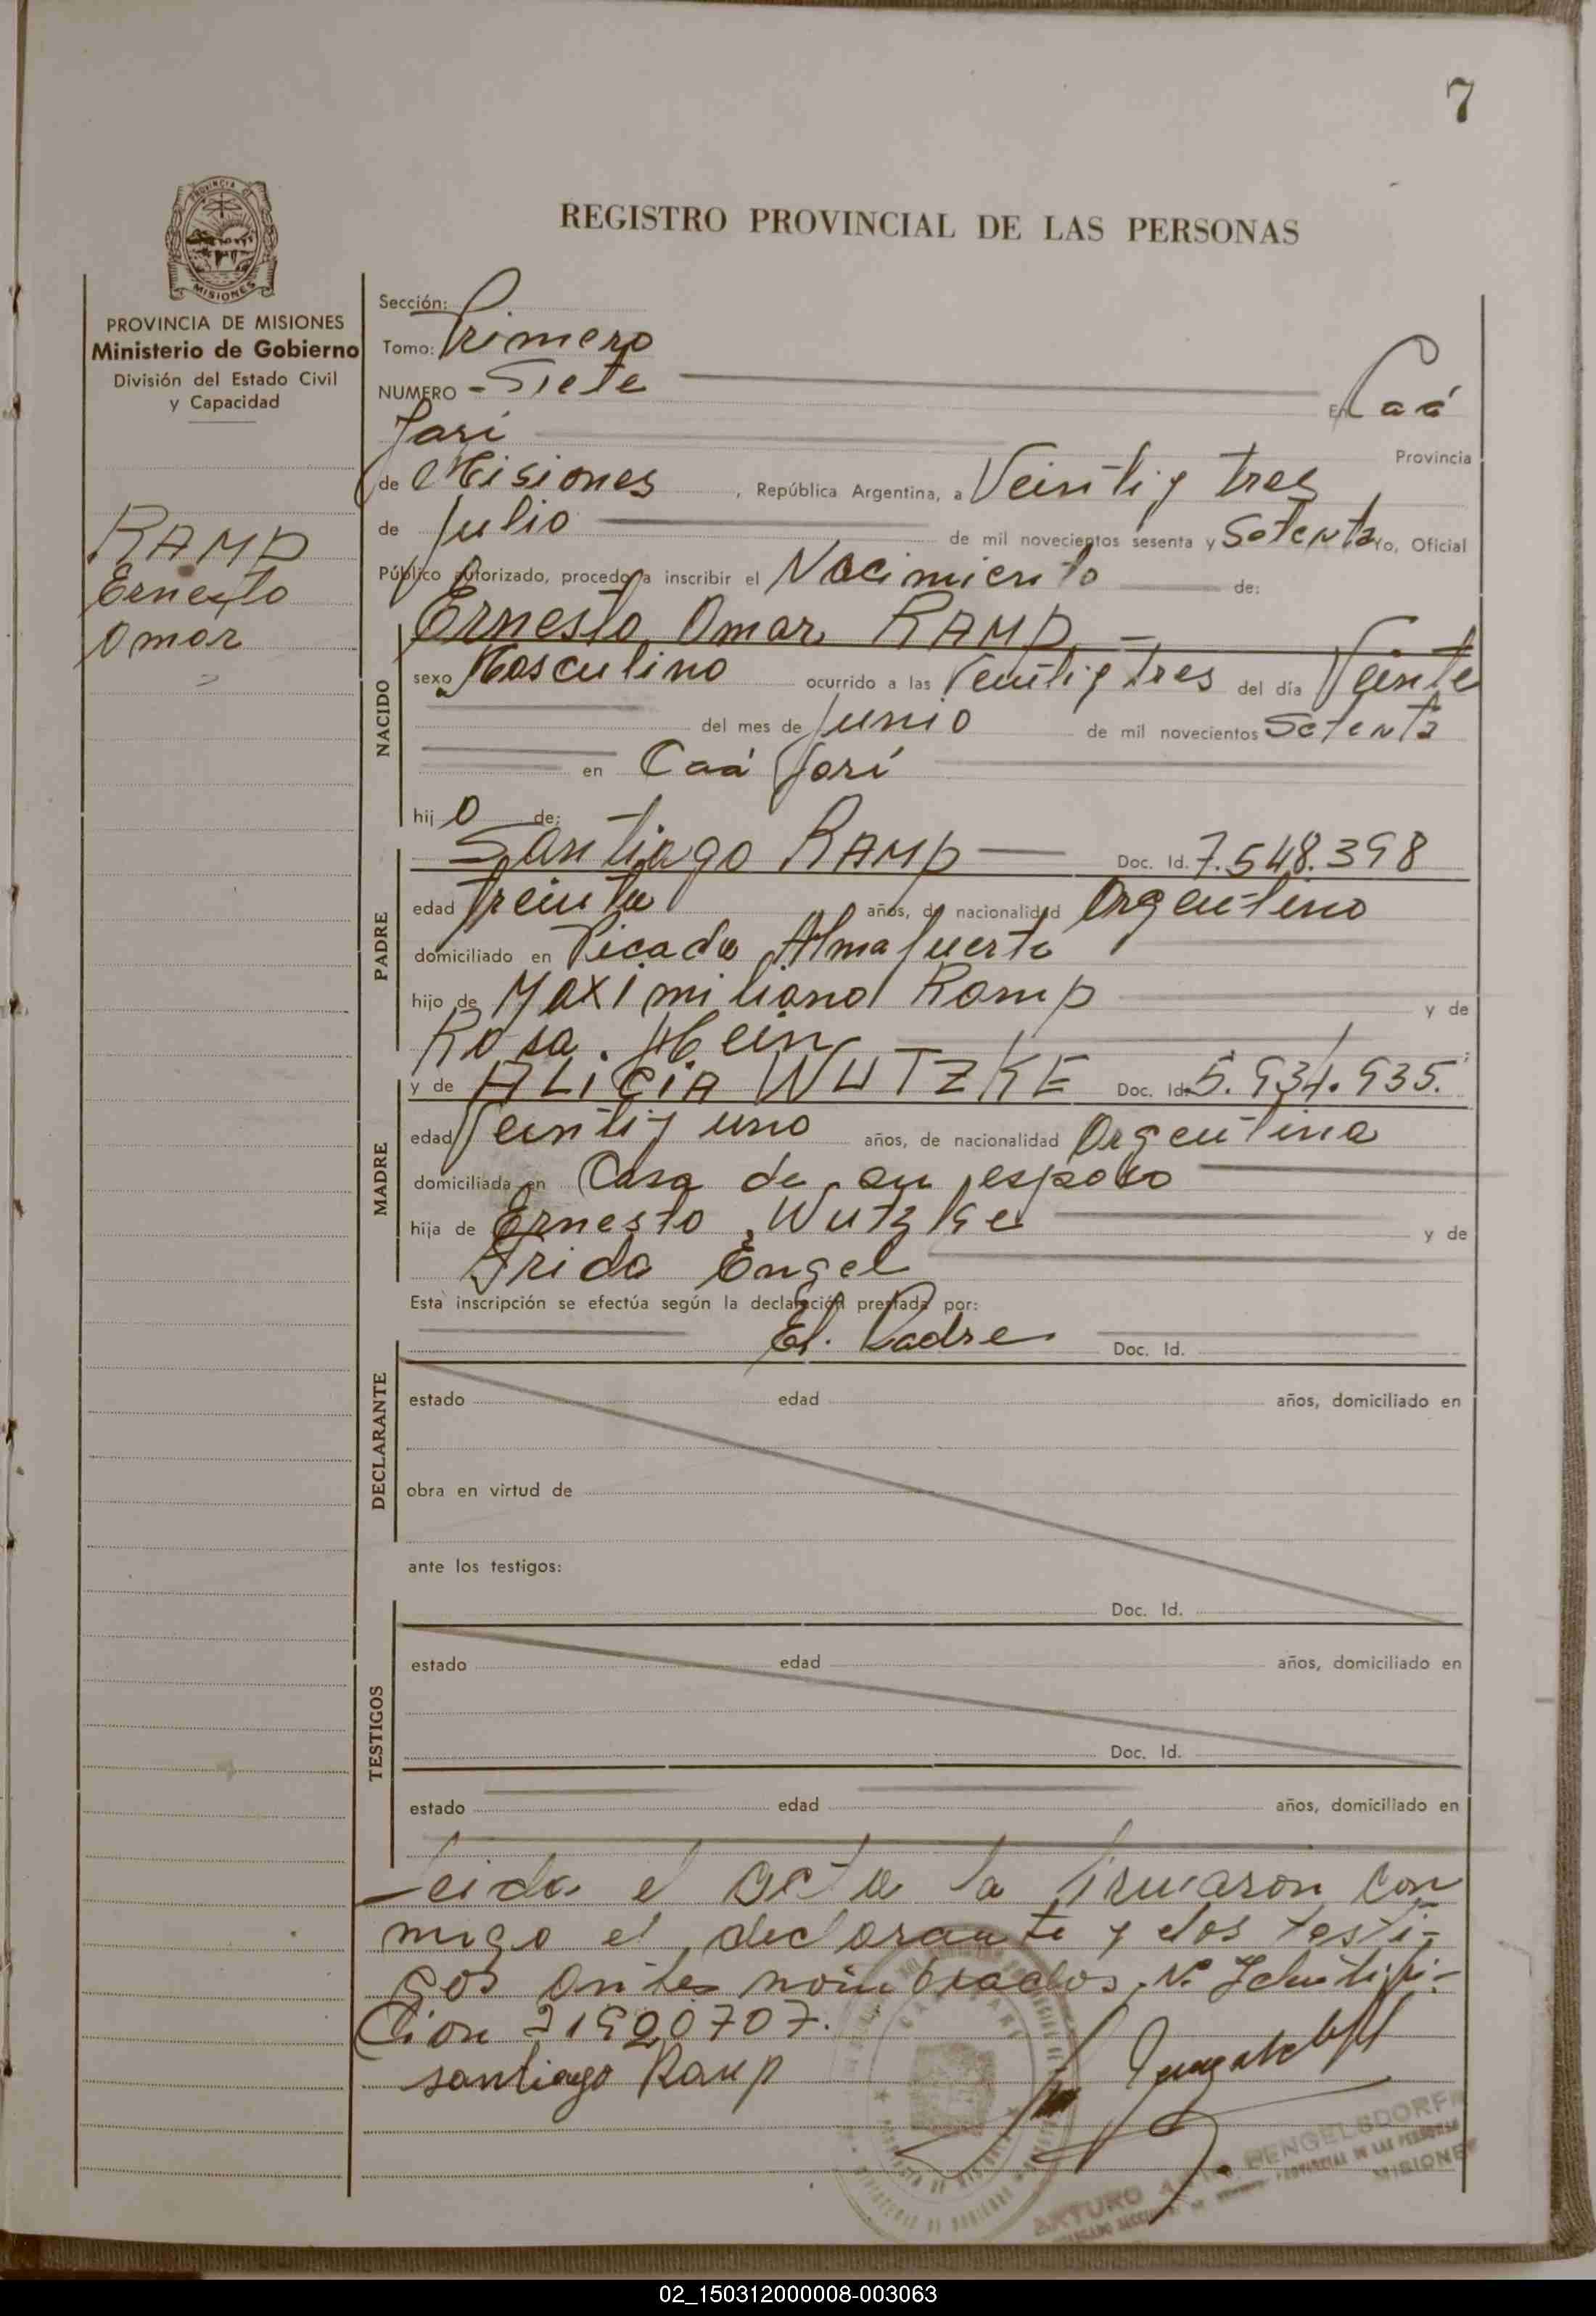 7
REGISTRO PROVINCIAL DE LAS PERSONAS
PROVINCIA DE MISIONES
Ministerio de Gobierno
División del Estado Civil
y Capacidad
RAMP
Ernesto
Omar
Sección:
Tomo: Primero
NUMERO - Siete En Caá
Yarí Provincia
de Misiones, República Argentina, a Veintiy tres
de Julio de mil novecientos sesenta y Setenta Yo, Oficial
Público autorizado, procedo a inscribir el Nacimiento de:
Ernesto Omar RAMP -
NACIDO
sexo Masculino ocurrido a las Veintiy tres del día Veinte
del mes de Junio de mil novecientos Setenta
en Caá Yarí
hijo de:
PADRE
Santiago RAMP Doc. Id. 7.548.398
edad treinta años, de nacionalidad Argentino
domiciliado en Picada Almafuerte
hijo de Maximiliano Ramp y de
Rosa. Hein
MADRE
y de ALICIA WUTZKE Doc. Id. 5.934.935.
edad Veintiy uno años, de nacionalidad Argentina
domiciliada en Casa de su esposo
hija de Ernesto Wutzke y de
Frida Engel
Esta inscripción se efectúa según la declaración prestada por:
El. Padre Doc. Id.
DECLARANTE
estado edad años, domiciliado en
obra en virtud de
ante los testigos:
Doc. Id.
TESTIGOS
estado edad años, domiciliado en
Doc. Id.
estado edad años, domiciliado en
Leida el acta la firmaron con
migo el declarante y dos testi-
gos antes nombrados, Nº Identifi-
cion 21920707.
santiago Ramp
ARTURO BENGELSDORFF
PROVINCIAL DE LAS PERSONAS
MISIONES
02_150312000008-003063